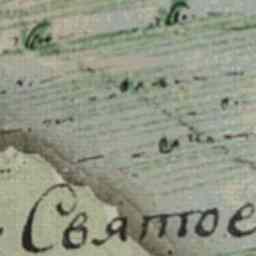 Святое